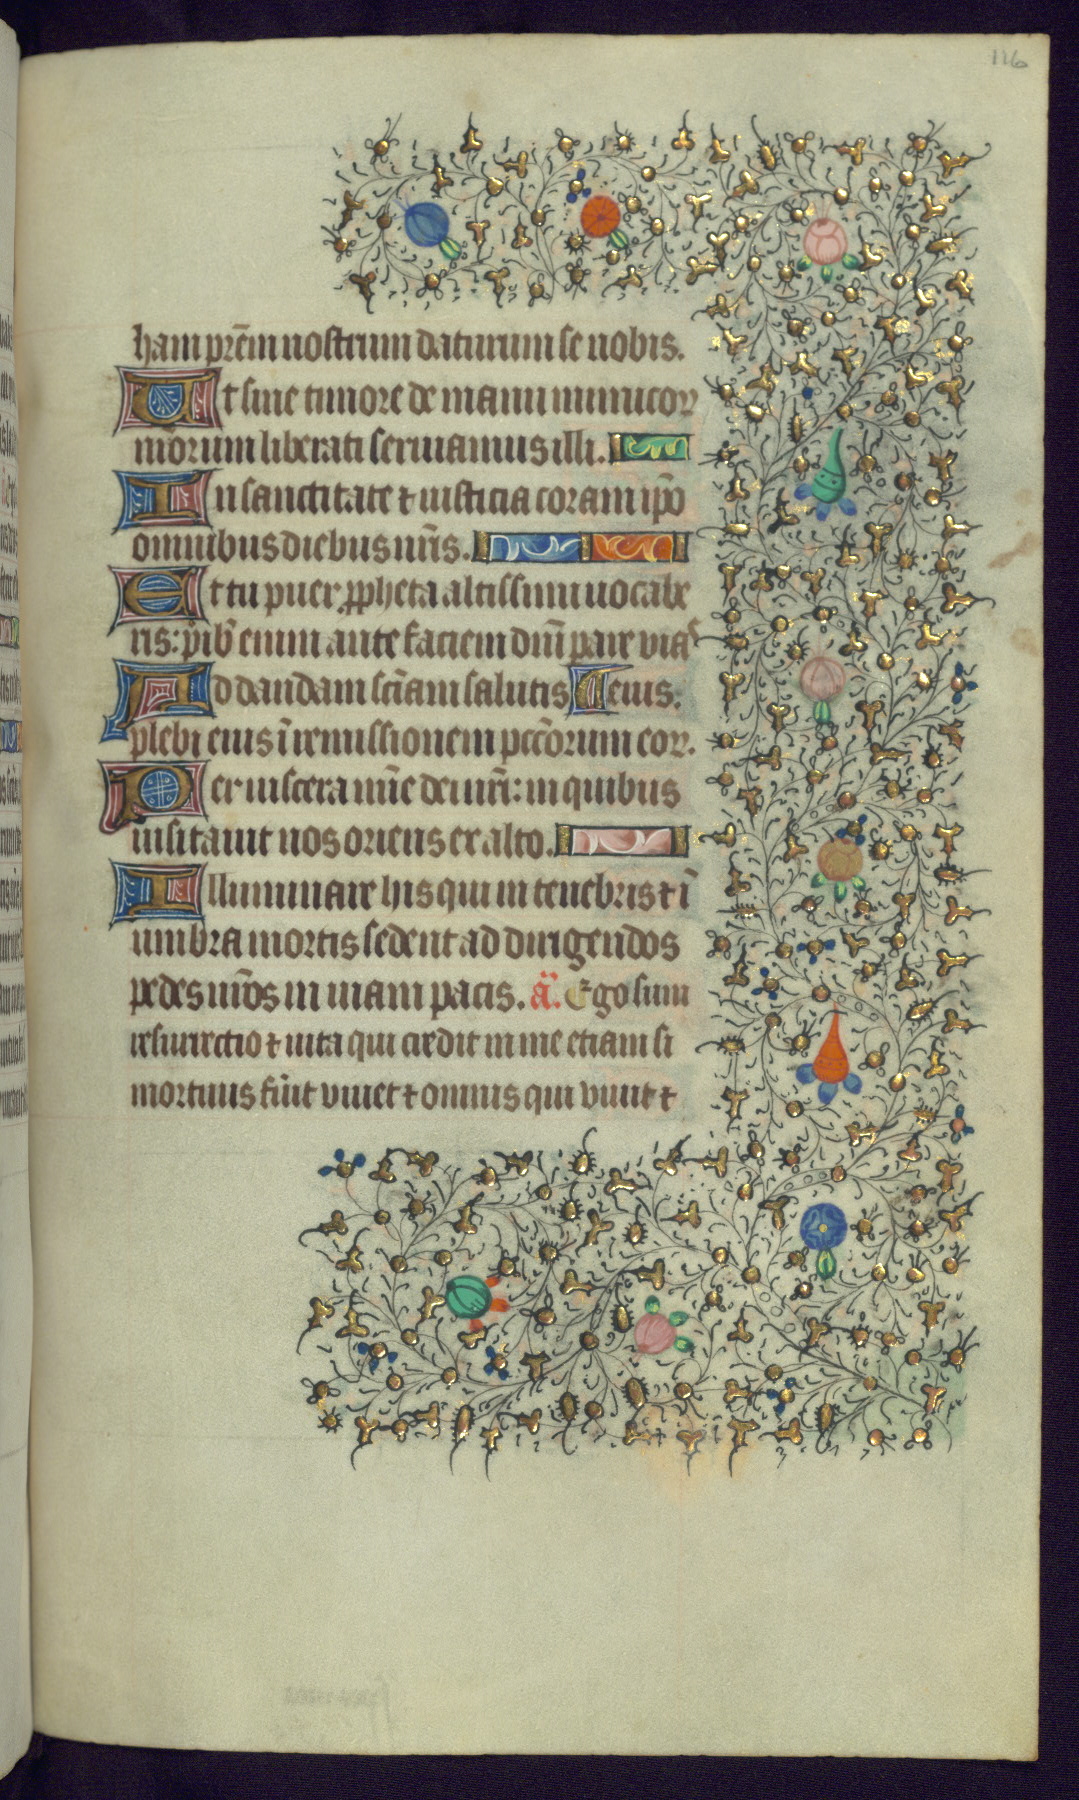 116
ham prēm nostrum daturum se nobis.
Ut sine timore de manu inimicoꝝ
morum liberati seruiamus illi.
In sanctitate ⁊ iusticia coram ipō
omnibus diebus nr̄is.
Et tu puer ꝓpheta altissimi uocabe
ris: p̄ib᷒ enim ante faciem dn̄i pare uias
Ad dandam sc̄iam salutis Ceius.
plebi eius ī remissionem pcc̄orum eoꝝ.
Per uiscera mīe dei nr̄i: in quibus
uisitauit nos oriens ex alto.
Illuminare his qui in tenebris ⁊ ī
umbra mortis sedent ad dirigendos
pedes nr̄os in uiam pacis. ā. Ego sum
resurrectio ⁊ uita qui credit in me etiam si
mortuus fūit viuet ⁊ omnis qui viuit ⁊